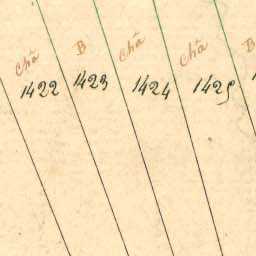 Châ B Châ Châ B
1422 1423 1424 1425